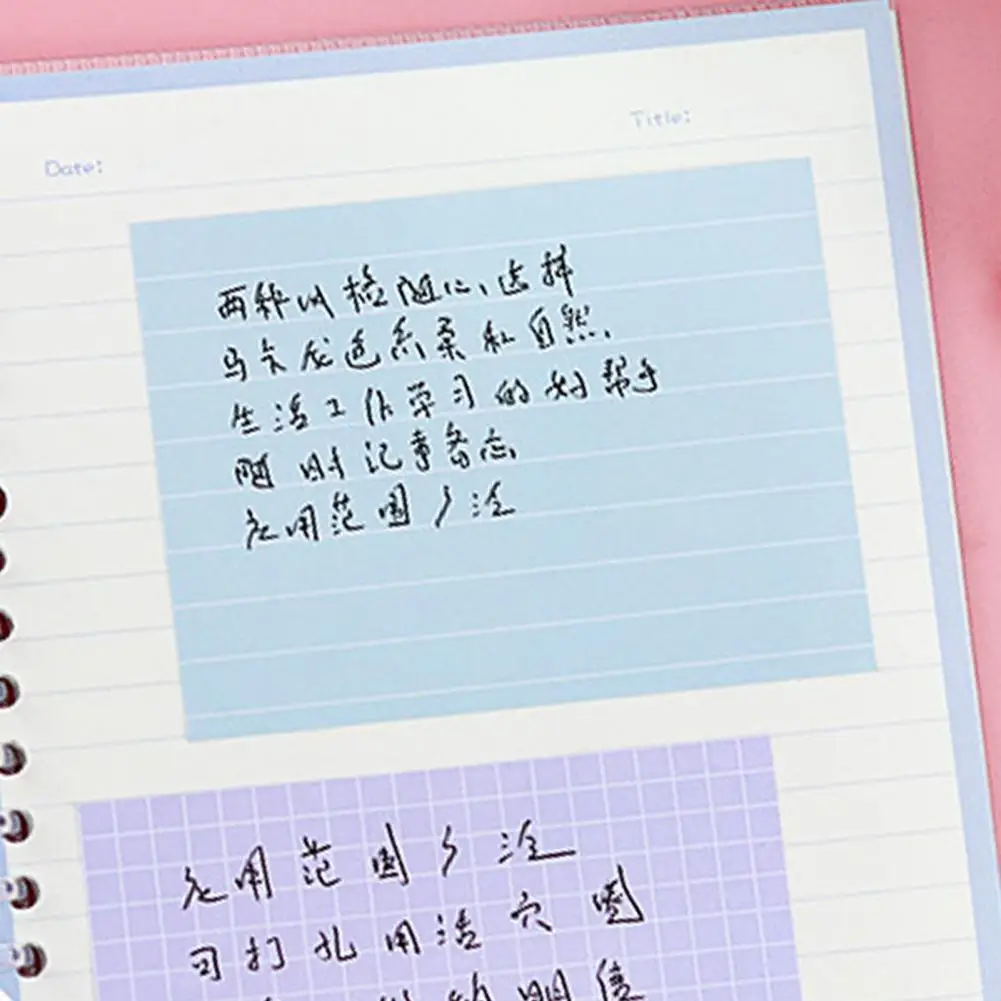 Title:
Date:
两种风格随心选择
马卡龙色系柔和自然,
生活工作学习的好帮手
随时记事备忘,
应用范围广泛
应用范围广泛
可打孔用活穴圈
明信